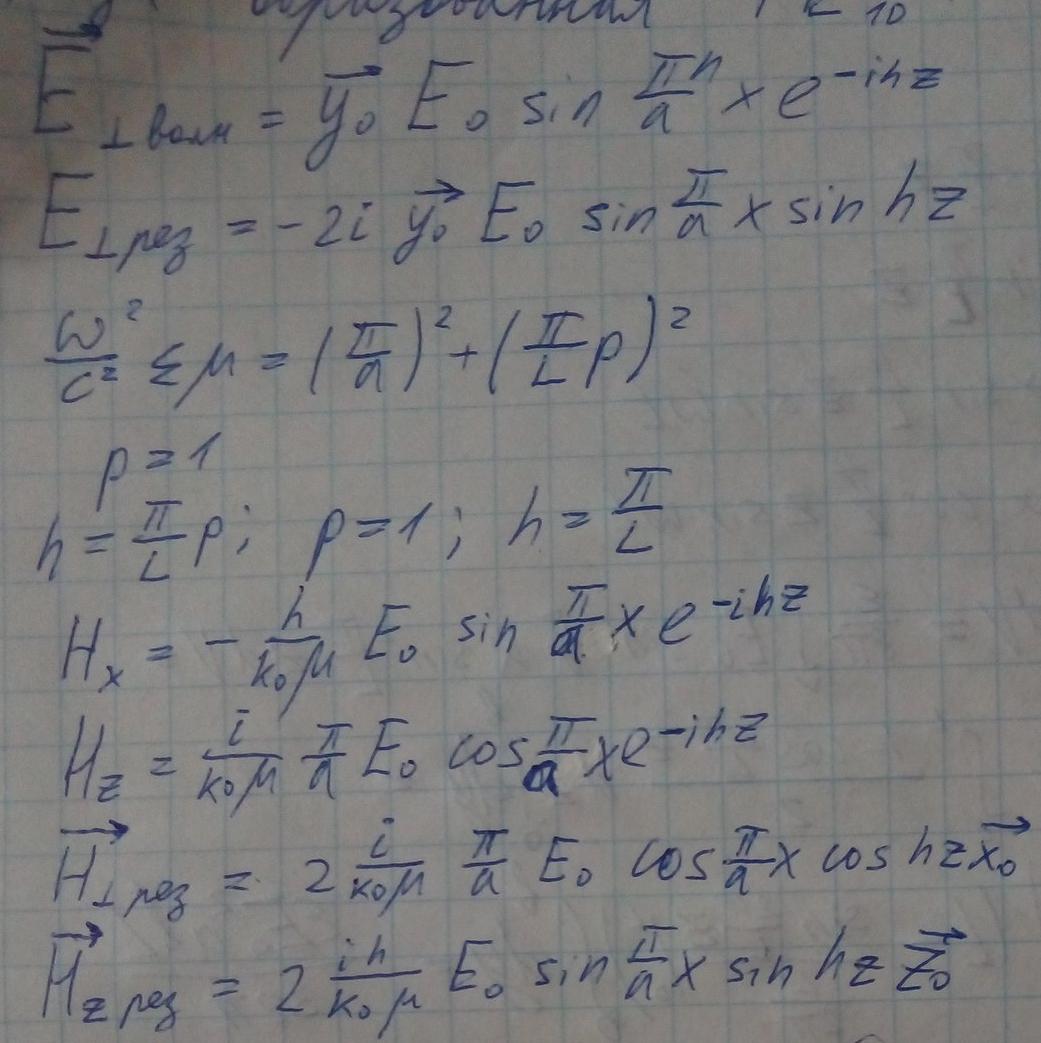 образованная
E⃗⊥волн = y⃗₀ E₀ sin (πn/a) x e^(-ihz)
E⊥рез = -2i y⃗₀ E₀ sin (π/a) x sin hz
ω²/c² εμ = (π/a)² + (π/L p)²
p = 1
h = π/L p; p = 1; h = π/L
Hₓ = - h/(k₀μ) E₀ sin (π/a) x e^(-ihz)
H_z = i/(k₀μ) π/a E₀ cos (π/a) x e^(-ihz)
H⃗⊥рез = 2 i/(k₀μ) π/a E₀ cos (π/a) x cos hz x⃗₀
H⃗_z рез = 2 ih/(k₀μ) E₀ sin (π/a) x sin hz z⃗₀